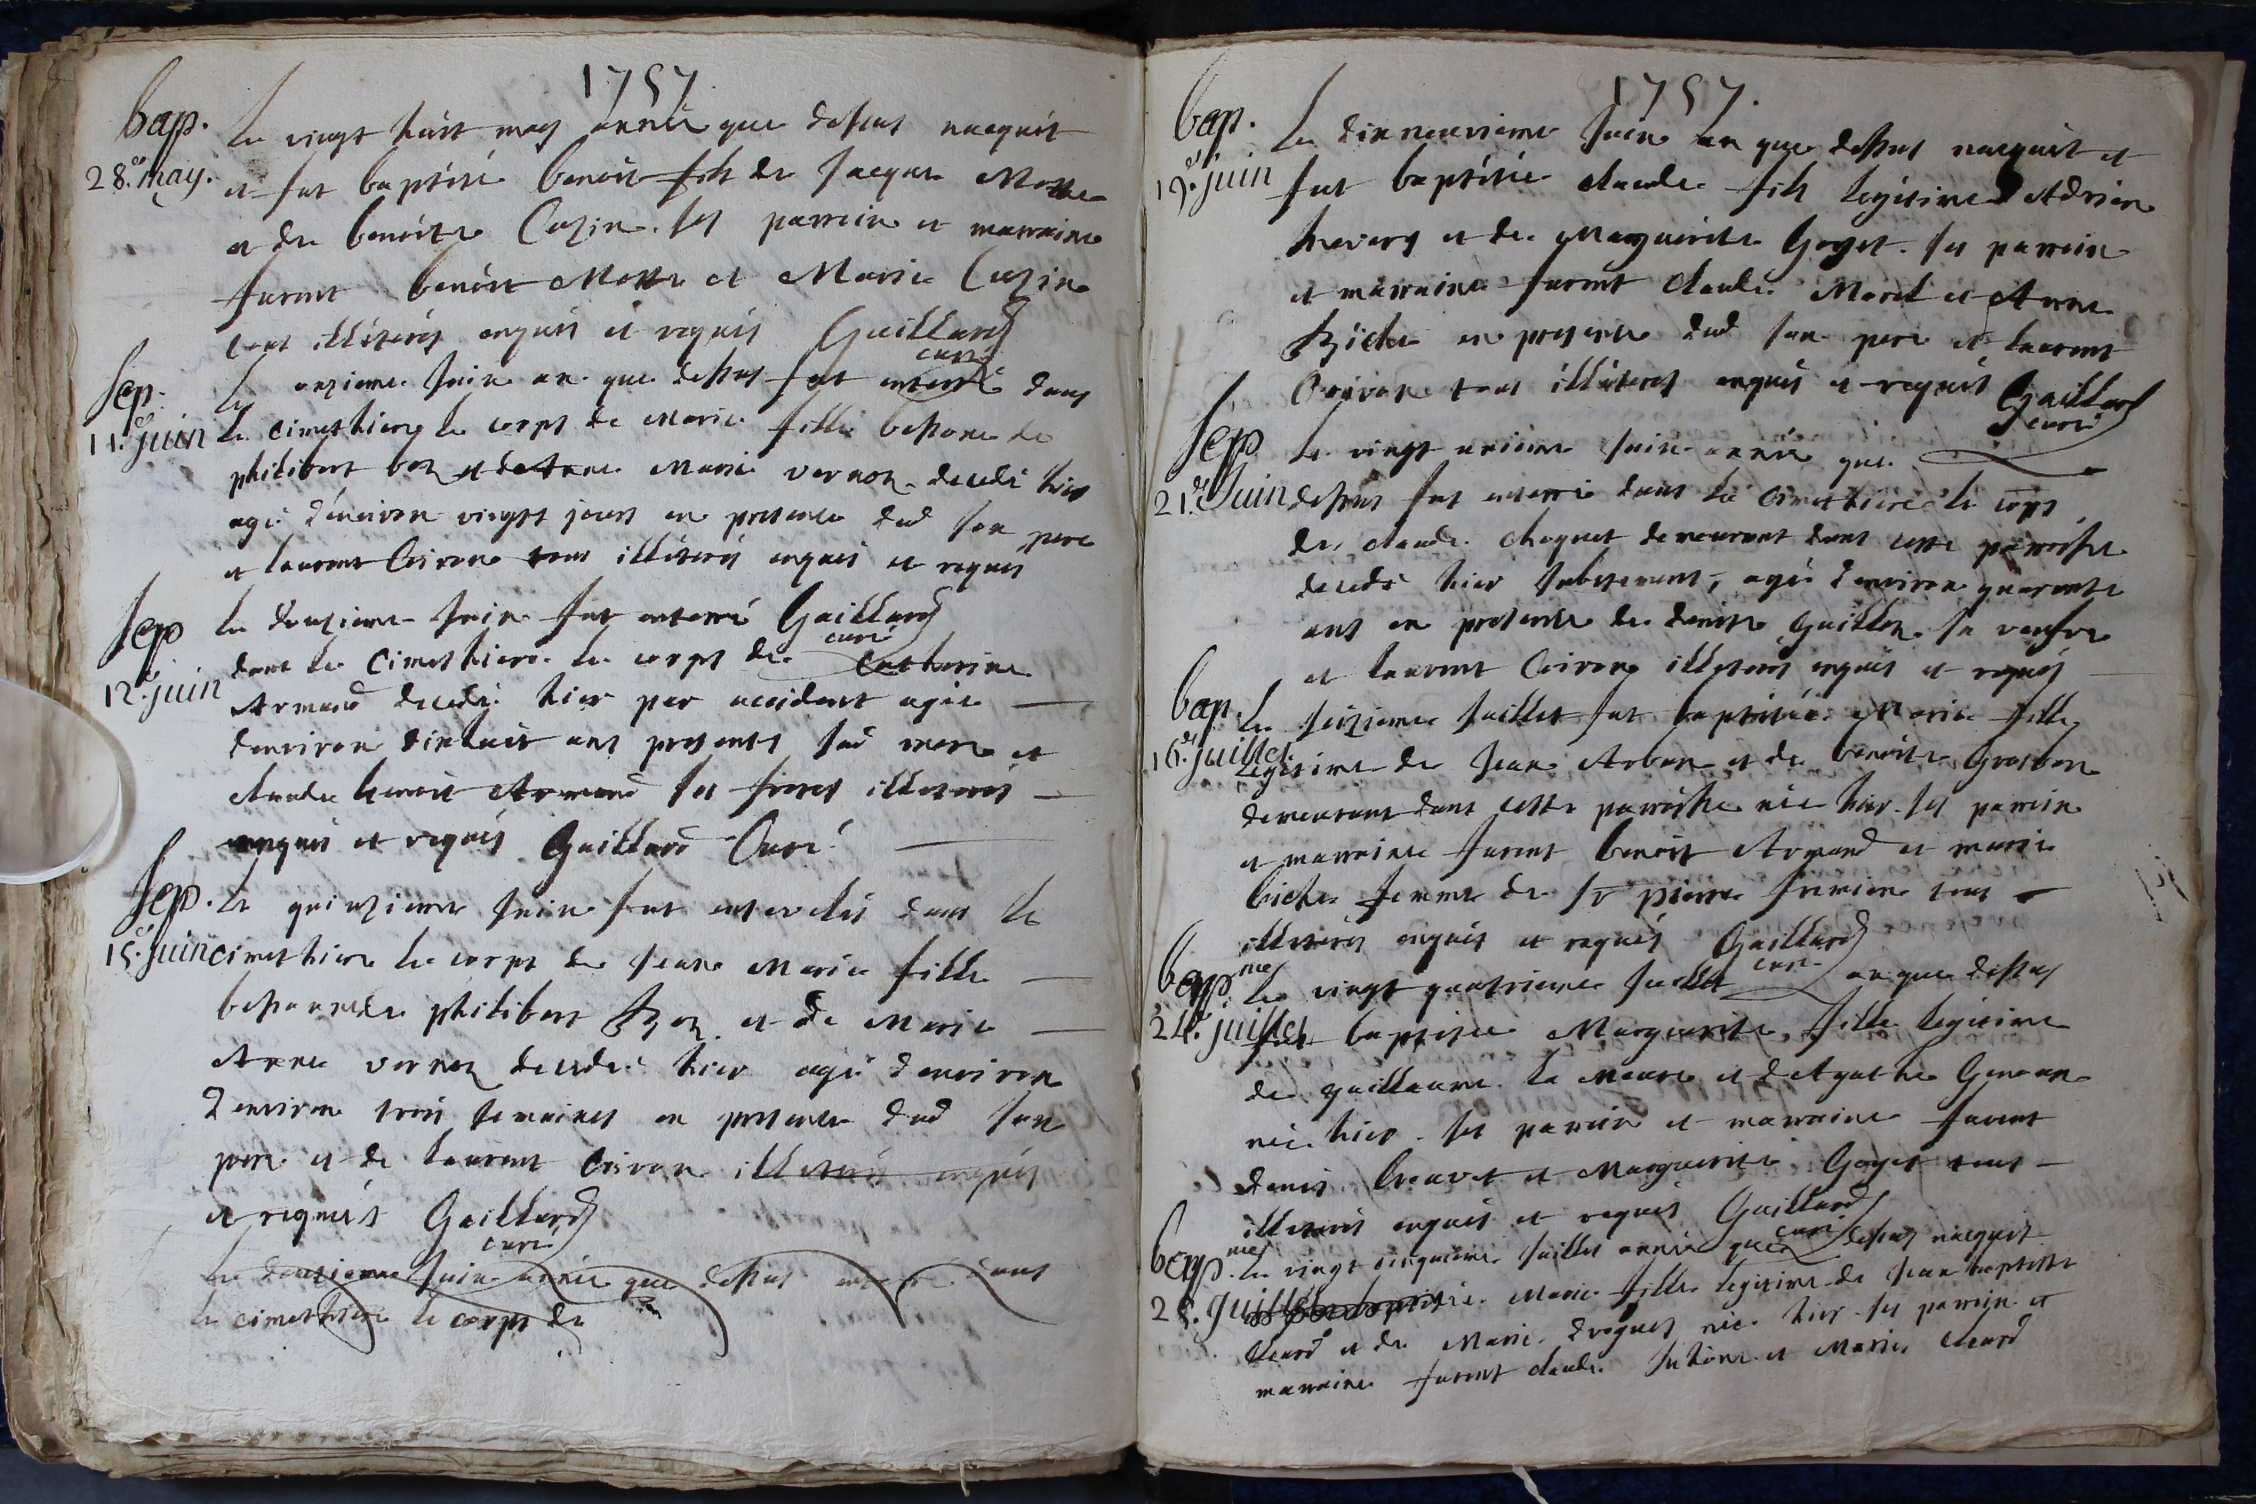 1757
bap. Le vingt huit may année que dessus nacquit
28.e may. et fut baptisé benoit fils de Jacque Motte
et de benoite Cuzin. ses parrein et marraine
furent benoit Motte et Marie Cuzin
tous illiterés enquis et requis Gaillard
curé
Sep. Le onzieme Juin an que dessus fut enterré dans
11.e juin le cimethiere le corps de Marie fille bessone de
philibert et de Anne Marie vernon decedé hier
agé d'environ vingt jours en presence dud son pere
et laurent Coiron tous illiterés enquis et requis
Sep Le douzieme Juin fut enterré Gaillard
curé
dans le Cimethiere le corps de Catherine
12.e juin Armand decedé hier par accident agée
denviron dixhuit ans presents sad mere et
Claude benoit Armand ses freres illiterés
enquis et requis Gaillard Curé
Sep. Le quinzieme Juin fut ensevelis dans le
15.e juin cimethiere le corps de Jeane Marie fille
bessone de philibert et de Marie
Anne vernon decedé hier agé denviron
denviron trois semaines en presence dud son
pere et de laurent Coiron illiterés enquis
et requis Gaillard
curé
Le douzieme Juin année que dessus dans
le cimethiere le corps de
1757.
bap. Le dixneuvieme Juin an que dessus nacquit et
19.e juin fut baptisée claude fils legitime d Adrien
et de Marguerite Goyet. ses parrein
et marraine furent claude Morel et Anne
en presence dud son pere et laurent
Coiron tous illiterés enquis et requis Gaillard
curé
Sep Le vingt unieme Juin année que
21.e Juin dessus fut enterré dans le Cimethiere le corps
de claude choquet demeurant dans cette paroisse
decedé hier subitement, agé d environ quarante
ans en presence de denise Guillon sa veufve
et laurent Coiron illiterés enquis et requis
bap. Le seizieme Juillet fut baptisée Marie fille
16.e juillet. legitime de Jean Arban et de benoite Grosbon
demeurant dans cette paroisse née hier. ses parrein
et marraine furent benoit Armand et marie
biche femme de Sr pierre tous
illiterés enquis et requis Gaillard
curé
bap.me Le vingt quatrieme Juillet an que dessus
24.e juillet fut baptisée Marguerite fille legitime
de guillaume la Meure et d Agathe
née hier. ses parrein et marraine furent
denis et Marguerite Goyet tous
illiterés enquis et requis Gaillard
curé
bap.me Le vingt cinquieme Juillet année que dessus nacquit
25. Juillet Marie fille legitime de Jean baptiste
et de Marie née hier ses parrein et
marraine furent claude et Marie